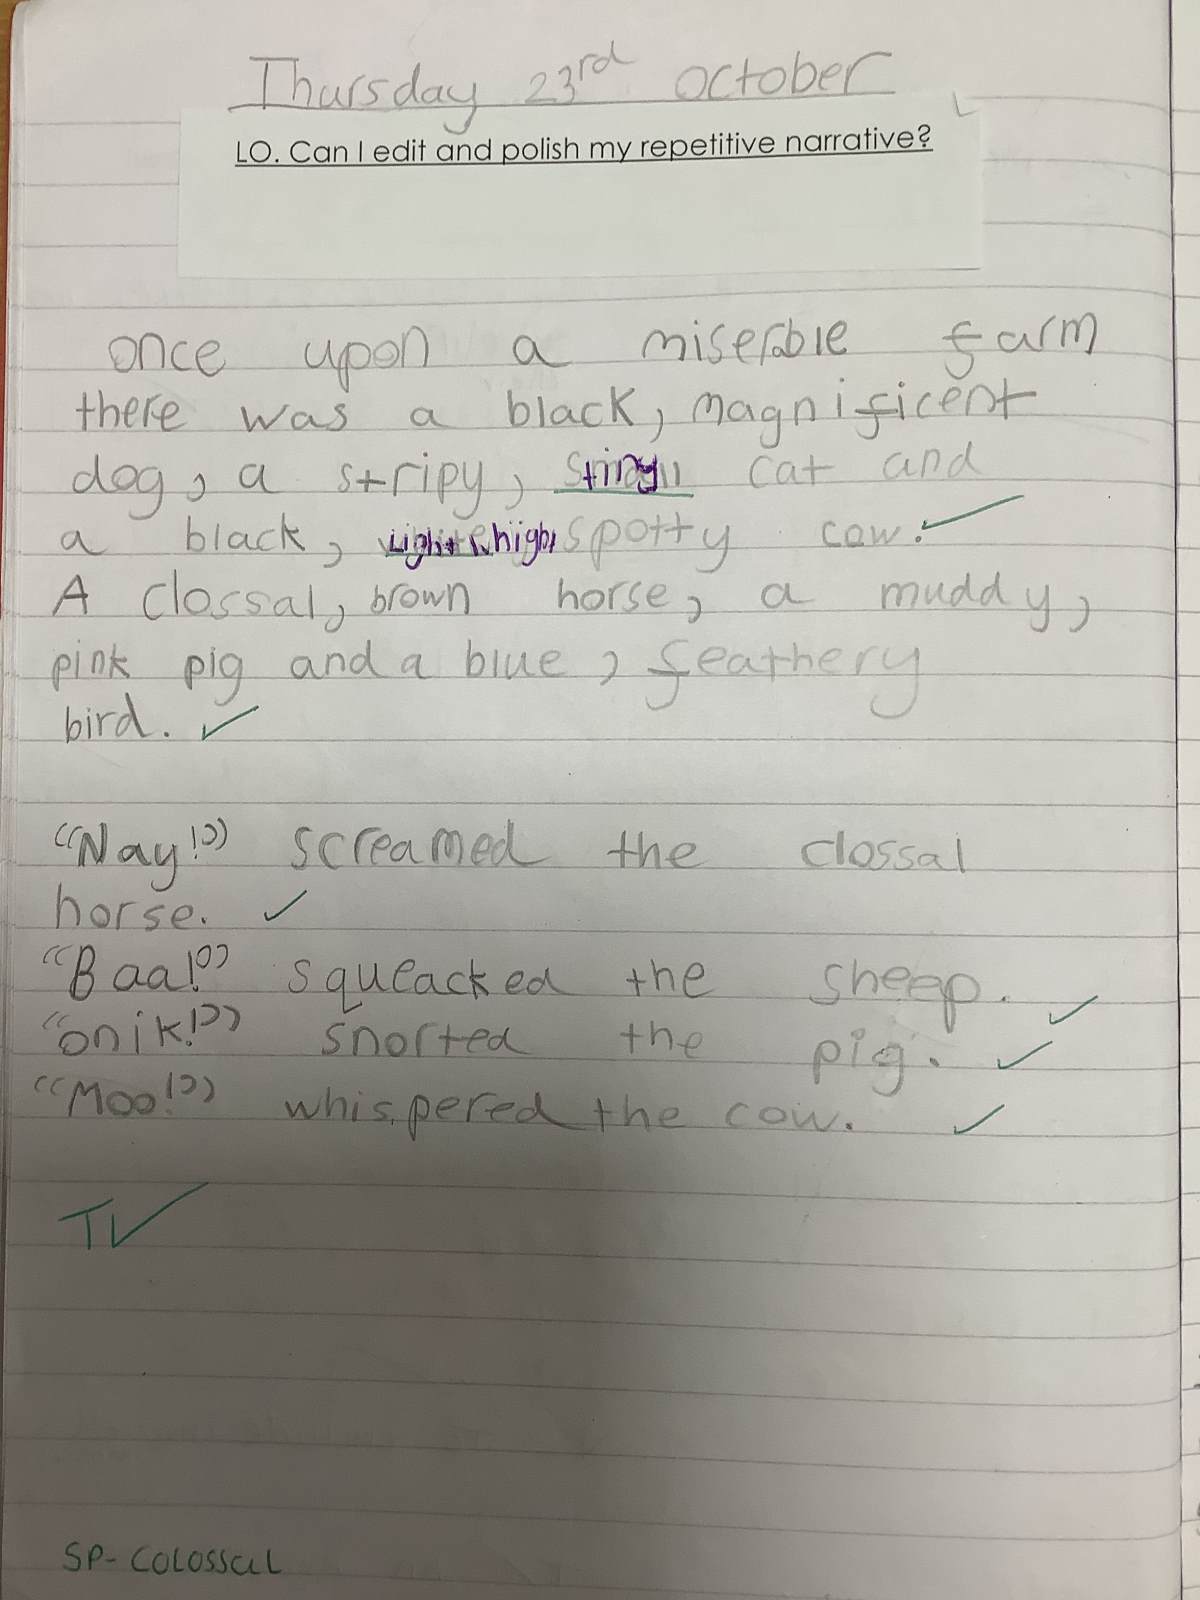 Thursday 23rd October
LO. Can I edit and polish my repetitive narrative?
once upon a miserable farm
there was a black, magnificent
dog, a stripy, cat and
a black, spotty cow.
A clossal, brown horse, a muddy,
pink pig and a blue, feathery
bird.
"Nay!" screamed the clossal
horse.
"Baa!" squeacked the sheep.
"onik!" snorted the pig.
"Moo!" whispered the cow.
T
SP- COLOSSAL